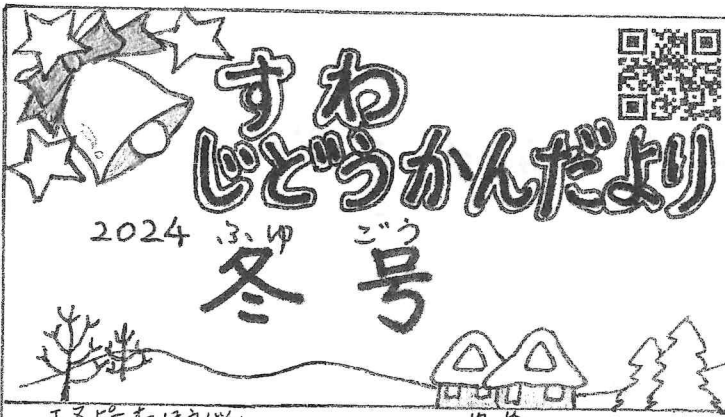 すわ
じどうかんだより
2024 ふゆ ごう
冬号